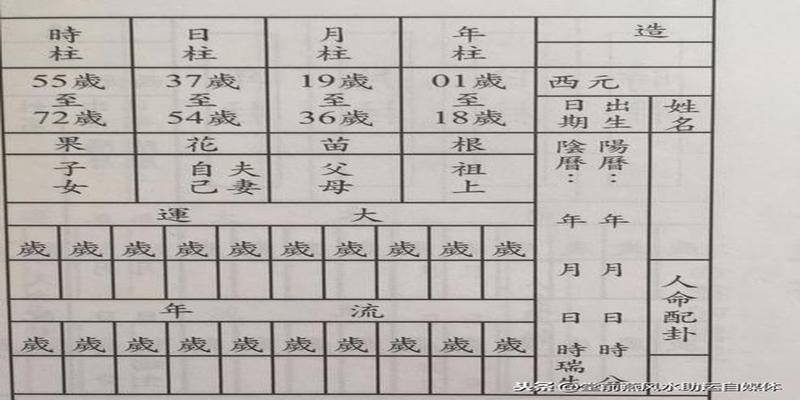 造
年柱 月柱 日柱 時柱
西元
01歲至18歲 19歲至36歲 37歲至54歲 55歲至72歲
姓名
出生日期
根 苗 花 果
祖上 父母 夫妻自己 子女
陽曆： 年 月 日 時
陰曆： 年 月 日 時瑞生
大運
歲 歲 歲 歲 歲 歲 歲 歲 歲 歲
人命配卦
流年
歲 歲 歲 歲 歲 歲 歲 歲 歲 歲
头条 @堂前燕风水助运自媒体